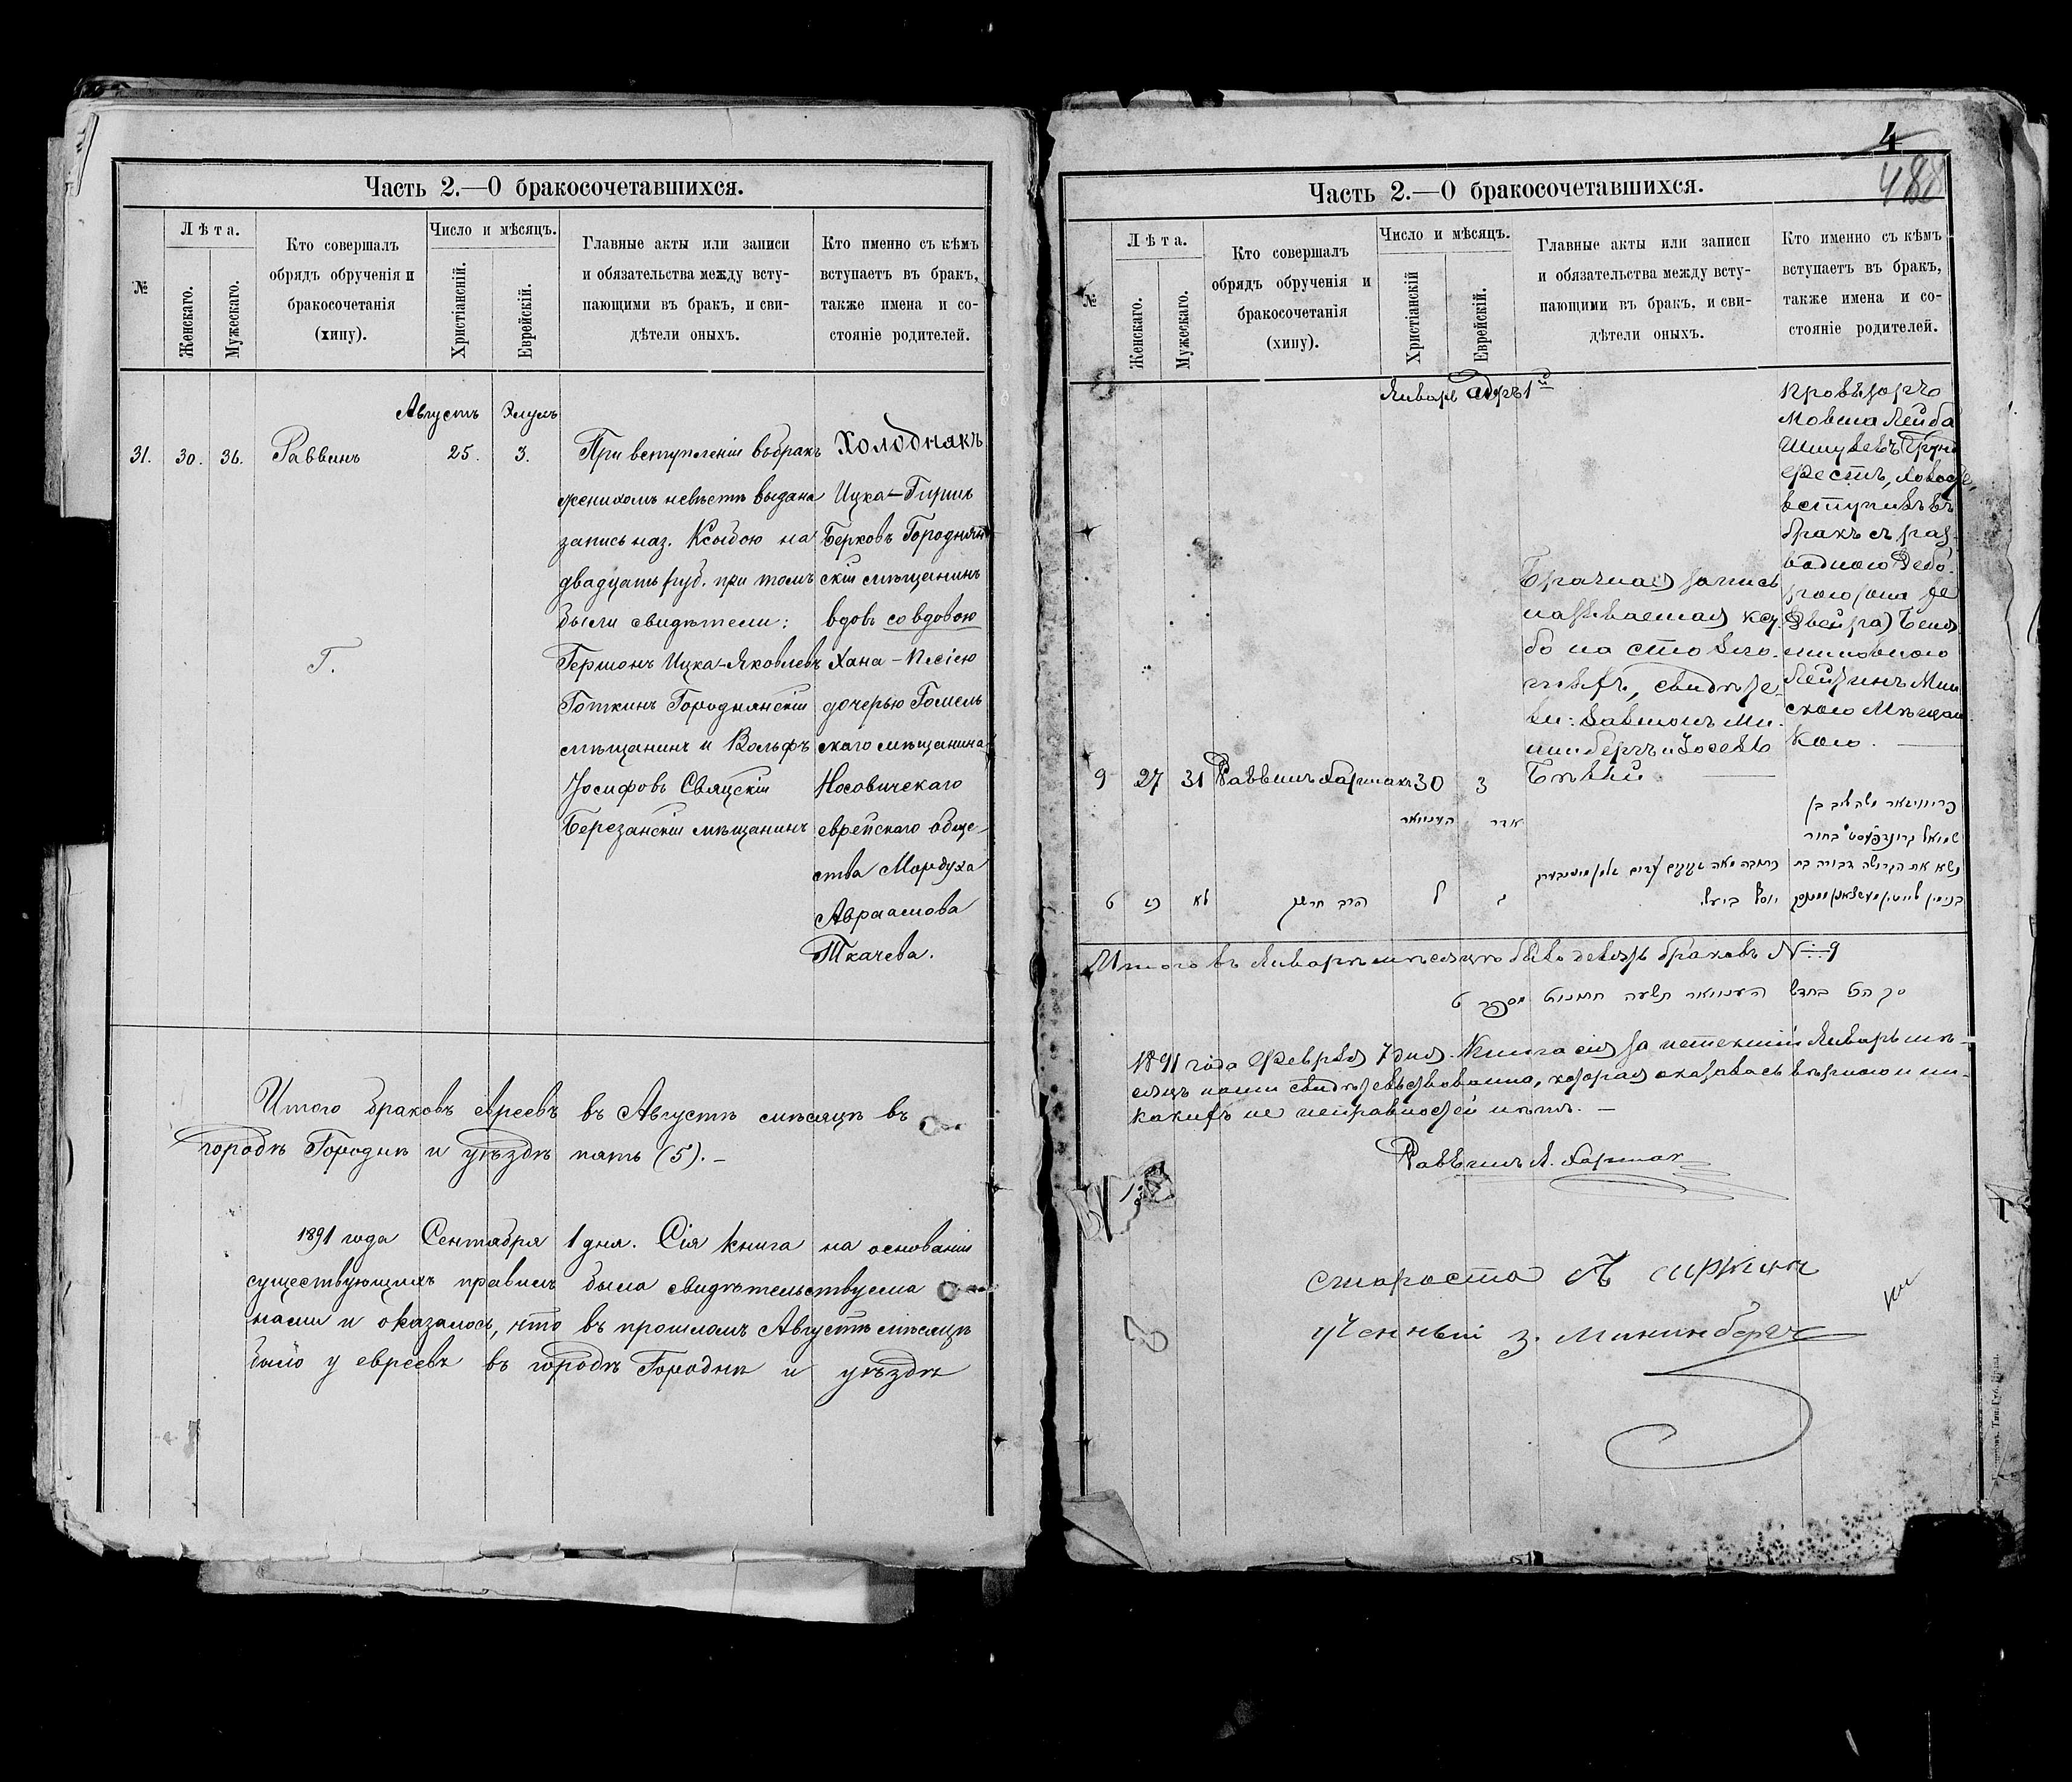 Часть 2.—О бракосочетавшихся.
№
Лѣта.
Женскаго.
Мужескаго.
Кто совершалъ
обрядъ обрученія и
бракосочетанія
(хипу).
Число и мѣсяцъ.
Христіанскій.
Еврейскій.
Главные акты или записи
и обязательства между всту-
пающими въ бракъ, и сви-
дѣтели оныхъ.
Кто именно съ кѣмъ
вступаетъ въ бракъ,
также имена и со-
стояніе родителей.
Августъ Элулъ
31. 30. 36. Раввинъ 25. 3.
Г.
При вступленіи въ бракъ
женихомъ невѣстѣ выдана
запись наз. Ксыбою на
двадцать руб. при томъ
были свидѣтели:
Гершонъ Ицка-Яковлевъ
Готкинъ Городнянскій
мѣщанинъ и Вольфъ
Іосифовъ Свяцскій
Березанскій мѣщанинъ
Холоднякъ
Ицка-Гиршъ
Берковъ Городнян
скій мѣщанинъ
вдовъ со вдовою
Хана-Песіею
дочерью Гомель
скаго мѣщанина
Носовичскаго
еврейскаго обще-
ства Мордуха
Авраамова
Ткачева.
Итого браковъ евреевъ въ Августѣ мѣсяцѣ въ
городѣ Городнѣ и уѣздѣ пять (5).—
1891 года Сентября 1 дня. Сія книга на основаніи
существующихъ правилъ была свидѣтельствуема
нами и оказалось, что въ прошломъ Августѣ мѣсяцѣ
было у евреевъ въ городѣ Городнѣ и уѣздѣ
4
488
Часть 2.—О бракосочетавшихся.
№
Лѣта.
Женскаго.
Мужескаго.
Кто совершалъ
обрядъ обрученія и
бракосочетанія
(хипу).
Число и мѣсяцъ.
Христіанскій
Еврейскій.
Главные акты или записи
и обязательства между всту-
пающими въ бракъ, и сви-
дѣтели оныхъ.
Кто именно съ кѣмъ
вступаетъ въ бракъ,
также имена и со-
стояніе родителей.
Январь Адръ 1й
9 27 31 Раввинъ Харшакъ 30 3
Брачная запись
называемая ксу-
бо на сто зло-
тыхъ, свидѣте-
ли: Залмонъ Ми-
нинбергъ и Іосель
Бѣлый
Провизоръ
Мовша Лейба
Шмулевъ Грунд
фестъ, холост,
вступилъ въ
бракъ съ раз-
водною Дебо-
рою (она же
Двейра) Беня-
миновною
Лейтинъ Мин
скою Мѣщан
кою.
פרוויזאר משה ליב בן
שמואל גרונדפעסט בחור
נשא את הגרושה דבורה בת
הרב חרשק
יוסף ביעלי
ט כז לא ל ג
יענוואר אדר
Итого въ Январѣ мѣсяцѣ было девять браковъ №: 9
סך הכל בחדש יענוואר תשעה חתונות מספר ט
1891 года Февраля 7 дня. Книга сія за истекшій Январь мѣ-
сяцъ нами свидѣтельствована, которая оказалась вѣрною и ни-
какихъ не исправностей нѣтъ.—
Раввинъ А. Харшак
староста
ученный З. Минингбергъ